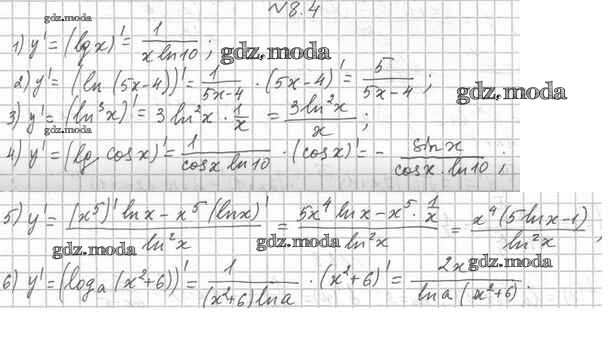 №8.4
gdz.moda
1) y' = (lg x)' = 1/(x ln10) ; gdz.moda
2) y' = (ln (5x-4))' = 1/(5x-4) · (5x-4)' = 5/(5x-4) ; gdz.moda
3) y' = (ln³x)' = 3 ln²x · 1/x = 3ln²x/x ;
gdz.moda
4) y' = (lg cosx)' = 1/(cosx ln10) · (cosx)' = - sinx/(cosx · ln10) ;
5) y' = ((x⁵)' lnx - x⁵ (lnx)')/ln²x = (5x⁴ lnx - x⁵ · 1/x)/ln²x = x⁴(5lnx-1)/ln²x ,
gdz.moda gdz.moda gdz.moda
6) y' = (logₐ (x²+6))' = 1/((x²+6) lna) · (x²+6)' = 2x/(lna (x²+6)) .